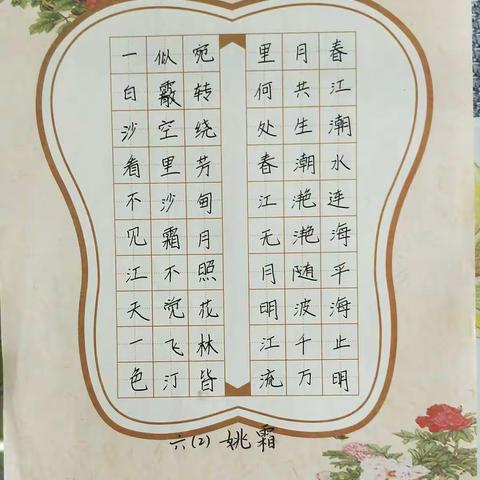 春江潮水连海平海止明
月共生潮滟滟随波千万
里何处春江无月明江流
宛转绕芳甸月照花林皆
似霰空里沙霜不觉飞汀
一白沙看不见江天一色
六(2) 姚霜